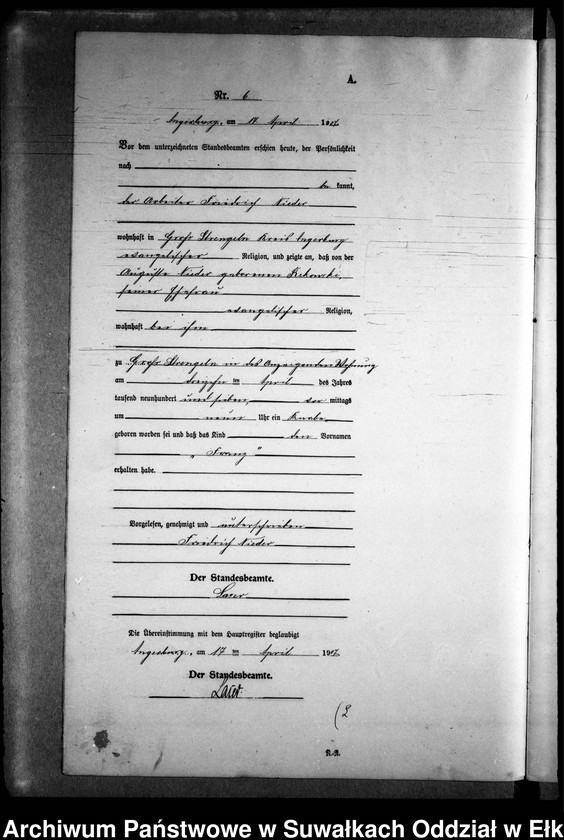 A.
Nr. 6
Angerburg, am 17 April 1907.
Vor dem unterzeichneten Standesbeamten erschien heute, der Persönlichkeit
nach
be kannt,
der Arbeiter Friedrich Nieder
wohnhaft in Groß Strengeln Kreis Angerburg
evangelischer Religion, und zeigte an, daß von der
Auguste Nieder geborenen
seiner Ehefrau
evangelischer Religion,
wohnhaft bei ihm
zu Groß Strengeln in des Anzeigenden Wohnung
am dreizehn ten April des Jahres
tausend neunhundert und sieben, vor mittags
um neun Uhr ein Knabe
geboren worden sei und daß das Kind den Vornamen
„Franz"
erhalten habe.
Vorgelesen, genehmigt und unterschrieben
Friedrich Nieder
Der Standesbeamte.
Die Übereinstimmung mit dem Hauptregister beglaubigt
Angerburg, am 17 ten April 1907.
Der Standesbeamte.
Archiwum Państwowe w Suwałkach Oddział w Ełk